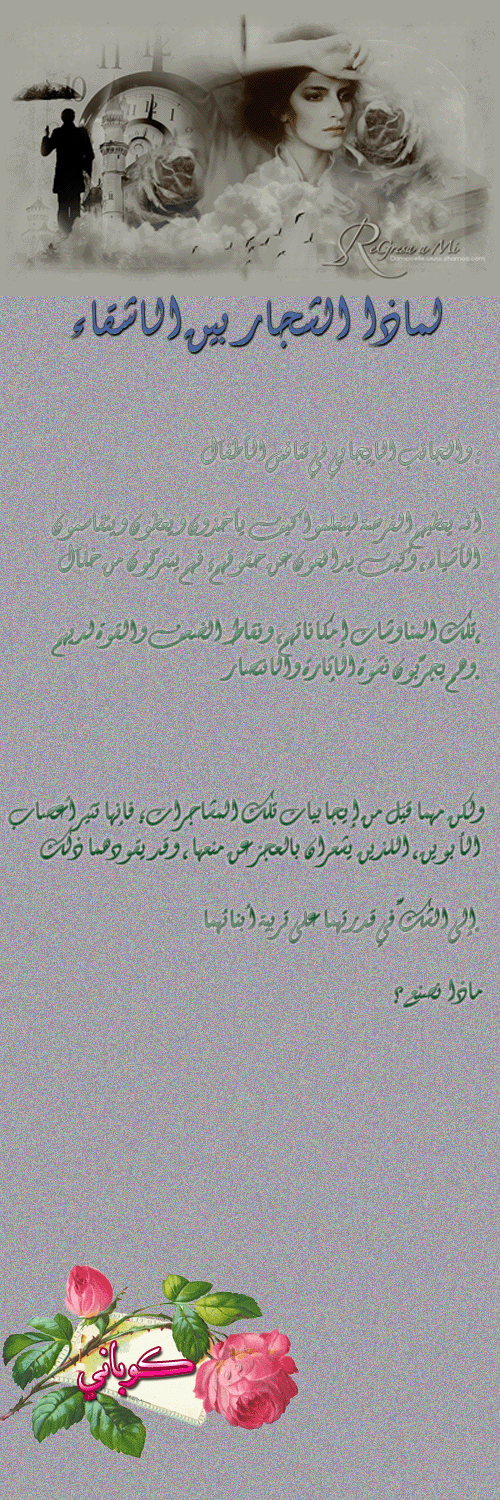 12
ReGresa a Mi
لماذا الشجار بين الاشقاء
. والجانب الإيجابي في تنافس الأطفال
أنه يعطيهم الفرصة ليتعلموا كيف يأخذون ويعطون ويتقاسمون
الأشياء، وكيف يدافعون عن حقوقهم؛ فهم يعرفون من خلال
،تلك المناوشات إمكاناتهم، ونقاط الضعف والقوة لديهم
.وهم يجربون نشوة الإثارة والانتصار
ولكن مهما قيل من إيجابيات تلك المشاجرات؛ فإنها تثير أعصاب
الأبوين، اللذين يشعران بالعجز عن منعها، وقد يقودهما ذلك
.إلى الشكّ في قدرتهما على تربية أبنائهما
ماذا نصنع؟
كوباني